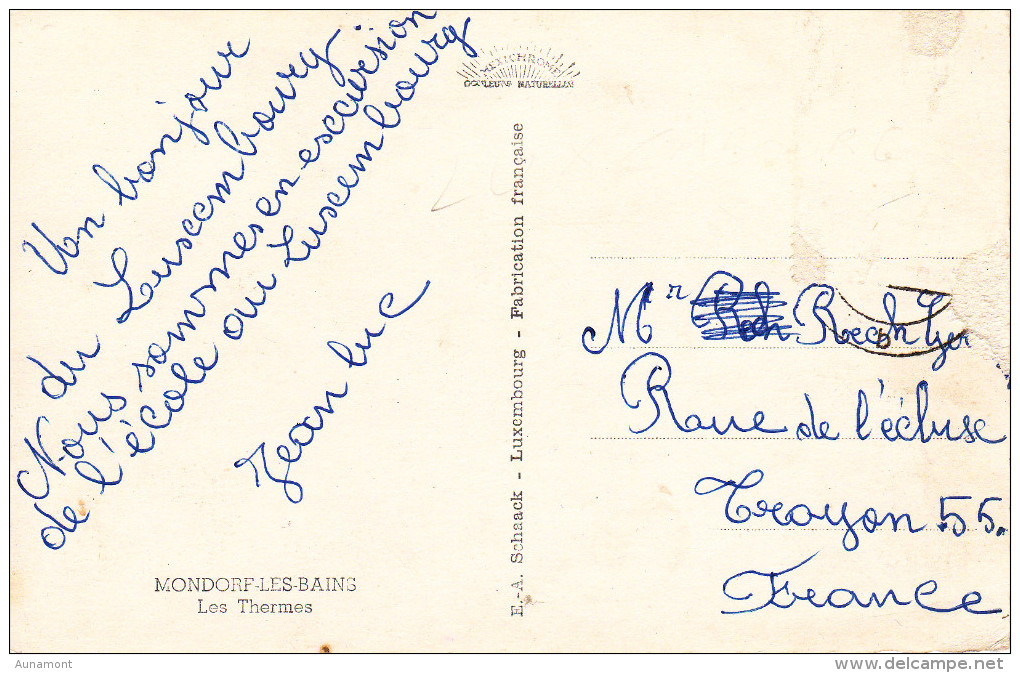 Un bonjour
du Luxembourg
Nous sommes en excursion
de l'école au Luxembourg
Jean luc
MONDORF-LES-BAINS
Les Thermes
MEXICHROME
COULEURS NATURELLES
E.-A. Schaack - Luxembourg - Fabrication française
Mr
Roue de l'écluse
Troyon 55.
France
Aunamont
delcampe.net